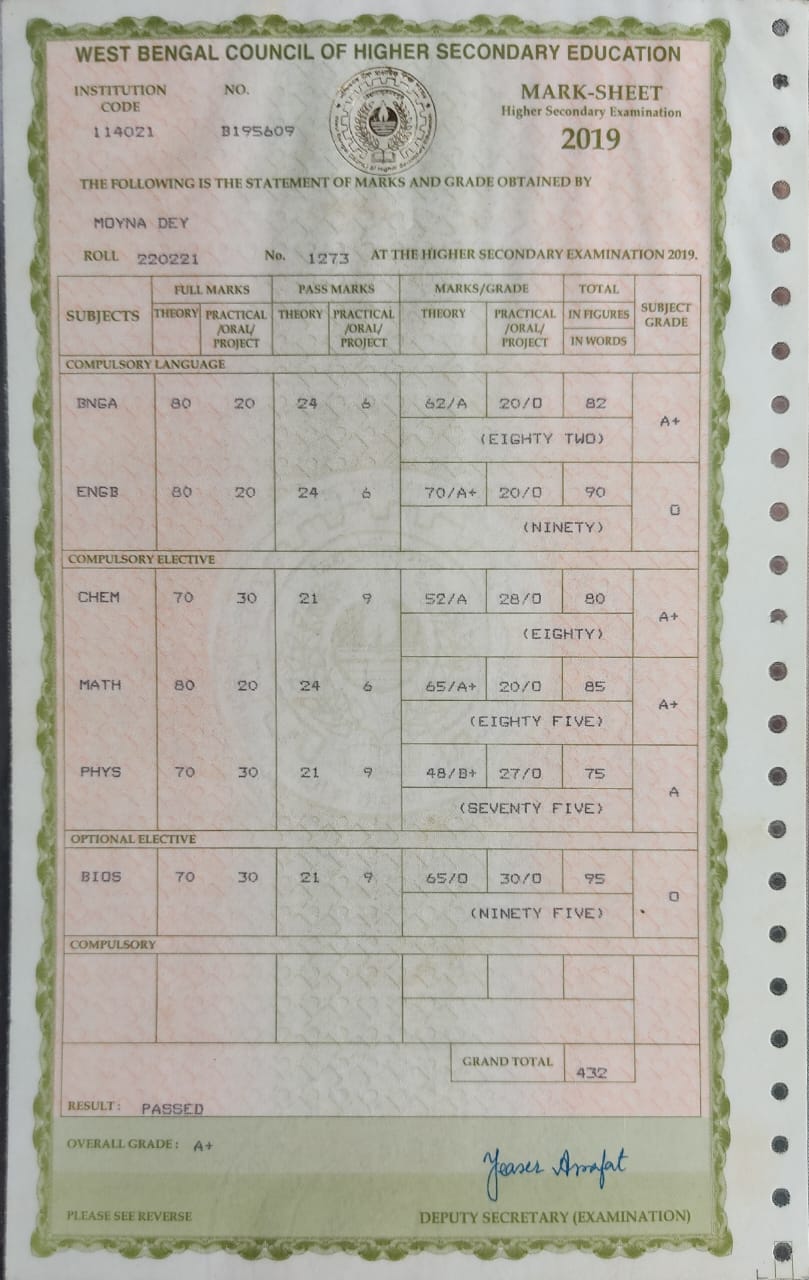 WEST BENGAL COUNCIL OF HIGHER SECONDARY EDUCATION
INSTITUTION CODE NO. MARK-SHEET
Higher Secondary Examination
114021 B195609 2019
THE FOLLOWING IS THE STATEMENT OF MARKS AND GRADE OBTAINED BY
MOYNA DEY
ROLL 220221 No. 1273 AT THE HIGHER SECONDARY EXAMINATION 2019.
SUBJECTS FULL MARKS PASS MARKS MARKS/GRADE TOTAL SUBJECT GRADE
THEORY PRACTICAL /ORAL/ PROJECT THEORY PRACTICAL /ORAL/ PROJECT THEORY PRACTICAL /ORAL/ PROJECT IN FIGURES
IN WORDS
COMPULSORY LANGUAGE
BNGA 80 20 24 6 62/A 20/O 82 A+
(EIGHTY TWO)
ENGB 80 20 24 6 70/A+ 20/O 90 O
(NINETY)
COMPULSORY ELECTIVE
CHEM 70 30 21 9 52/A 28/O 80 A+
(EIGHTY)
MATH 80 20 24 6 65/A+ 20/O 85 A+
(EIGHTY FIVE)
PHYS 70 30 21 9 48/B+ 27/O 75 A
(SEVENTY FIVE)
OPTIONAL ELECTIVE
BIOS 70 30 21 9 65/O 30/O 95 O
(NINETY FIVE)
COMPULSORY
GRAND TOTAL 432
RESULT : PASSED
OVERALL GRADE : A+
Yeaser Arrafat
PLEASE SEE REVERSE DEPUTY SECRETARY (EXAMINATION)